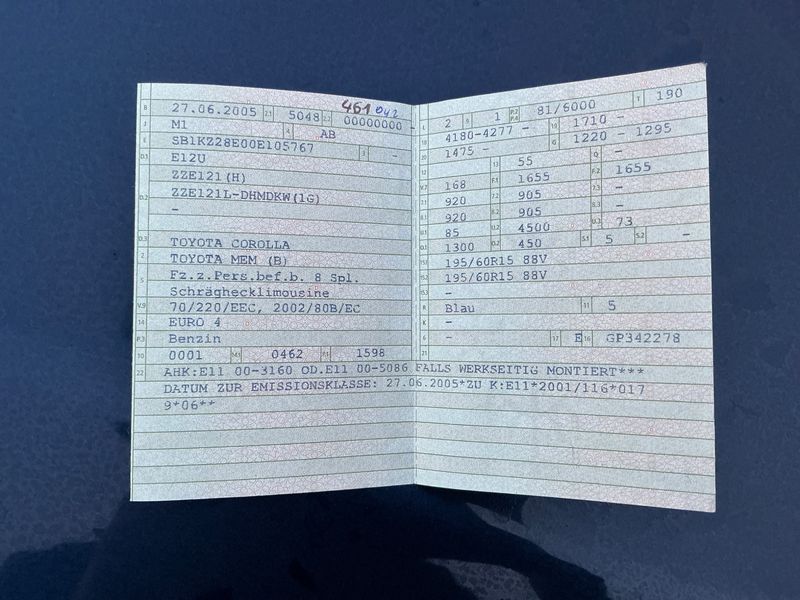 461 042
B 27.06.2005 2.1 5048 2.2 00000000 -
J M1 4 AB
E SB1KZ28E00E105767 3 -
D.1 E12U
ZZE121(H)
D.2 ZZE121L-DHMDKW(1G)
-
D.3 TOYOTA COROLLA
2 TOYOTA MEM (B)
5 Fz.z.Pers.bef.b. 8 Spl.
Schräghecklimousine
V.9 70/220/EEC, 2002/80B/EC
14 EURO 4
P.3 Benzin
10 0001 14.1 0462 P.1 1598
L 2 9 1 P.2 P.4 81/6000 T 190
18 4180-4277 - 19 1710 -
20 1475 - G 1220 - 1295
12 - 13 55 Q -
V.7 168 F.1 1655 F.2 1655
7.1 920 7.2 905 7.3 -
8.1 920 8.2 905 8.3 -
U.1 85 U.2 4500 U.3 73
O.1 1300 O.2 450 S.1 5 S.2 -
15.1 195/60R15 88V
15.2 195/60R15 88V
15.3 -
R Blau 11 5
K -
6 - 17 E 16 GP342278
21
22 AHK:E11 00-3160 OD.E11 00-5086 FALLS WERKSEITIG MONTIERT***
DATUM ZUR EMISSIONSKLASSE: 27.06.2005*ZU K:E11*2001/116*017
9*06**